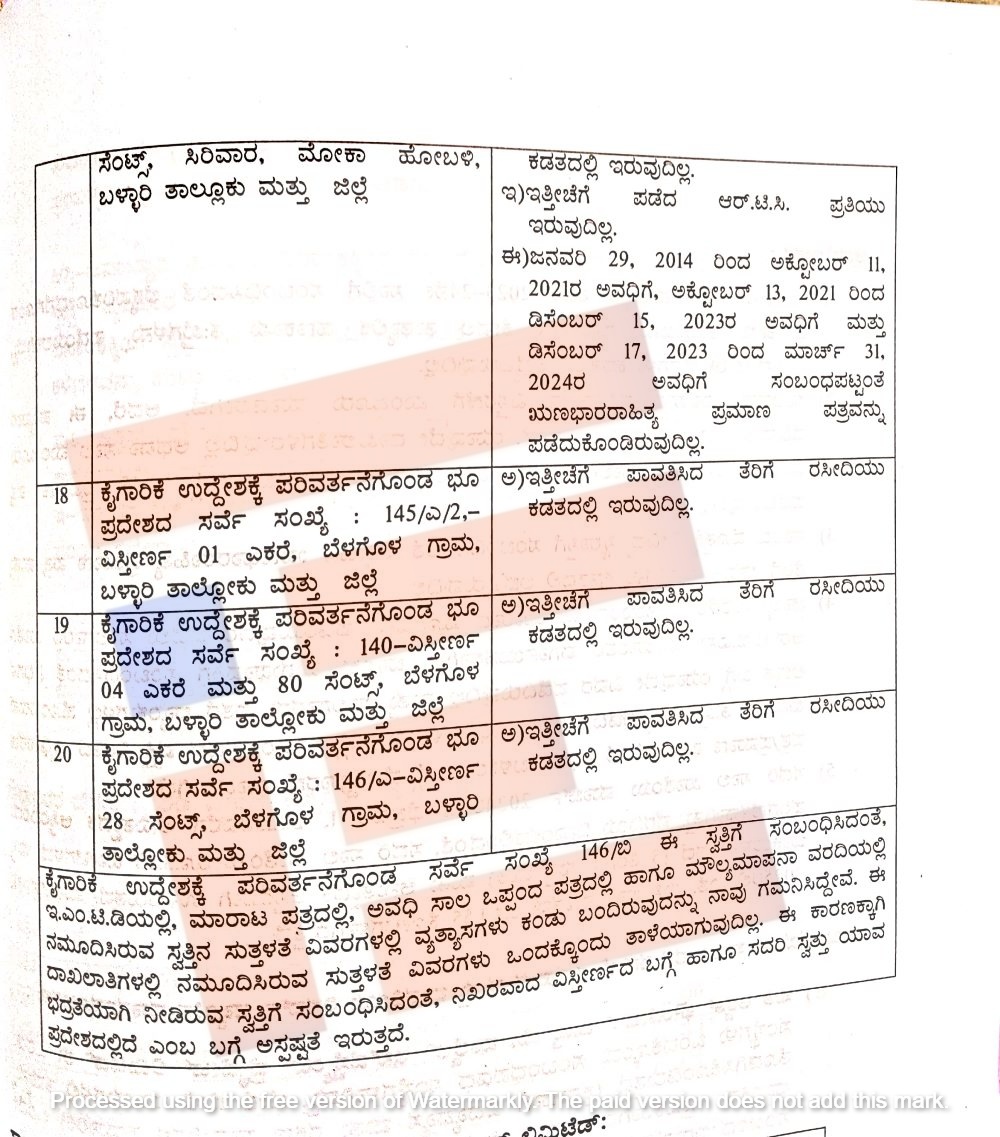 ಸೆಂಟ್ಸ್, ಸಿರಿವಾರ, ಮೋಕಾ ಹೋಬಳಿ,
ಬಳ್ಳಾರಿ ತಾಲ್ಲೂಕು ಮತ್ತು ಜಿಲ್ಲೆ
ಕಡತದಲ್ಲಿ ಇರುವುದಿಲ್ಲ.
ಇ)ಇತ್ತೀಚೆಗೆ ಪಡೆದ ಆರ್.ಟಿ.ಸಿ. ಪ್ರತಿಯು
ಇರುವುದಿಲ್ಲ.
ಈ)ಜನವರಿ 29, 2014 ರಿಂದ ಅಕ್ಟೋಬರ್ 11,
2021ರ ಅವಧಿಗೆ, ಅಕ್ಟೋಬರ್ 13, 2021 ರಿಂದ
ಡಿಸೆಂಬರ್ 15, 2023ರ ಅವಧಿಗೆ ಮತ್ತು
ಡಿಸೆಂಬರ್ 17, 2023 ರಿಂದ ಮಾರ್ಚ್ 31,
2024ರ ಅವಧಿಗೆ ಸಂಬಂಧಪಟ್ಟಂತೆ
ಋಣಭಾರರಾಹಿತ್ಯ ಪ್ರಮಾಣ ಪತ್ರವನ್ನು
ಪಡೆದುಕೊಂಡಿರುವುದಿಲ್ಲ.
18 ಕೈಗಾರಿಕೆ ಉದ್ದೇಶಕ್ಕೆ ಪರಿವರ್ತನೆಗೊಂಡ ಭೂ
ಪ್ರದೇಶದ ಸರ್ವೆ ಸಂಖ್ಯೆ : 145/ಎ/2,–
ವಿಸ್ತೀರ್ಣ 01 ಎಕರೆ, ಬೆಳಗೊಳ ಗ್ರಾಮ,
ಬಳ್ಳಾರಿ ತಾಲ್ಲೋಕು ಮತ್ತು ಜಿಲ್ಲೆ
ಅ)ಇತ್ತೀಚೆಗೆ ಪಾವತಿಸಿದ ತೆರಿಗೆ ರಸೀದಿಯು
ಕಡತದಲ್ಲಿ ಇರುವುದಿಲ್ಲ.
19 ಕೈಗಾರಿಕೆ ಉದ್ದೇಶಕ್ಕೆ ಪರಿವರ್ತನೆಗೊಂಡ ಭೂ
ಪ್ರದೇಶದ ಸರ್ವೆ ಸಂಖ್ಯೆ : 140–ವಿಸ್ತೀರ್ಣ
04 ಎಕರೆ ಮತ್ತು 80 ಸೆಂಟ್ಸ್, ಬೆಳಗೊಳ
ಗ್ರಾಮ, ಬಳ್ಳಾರಿ ತಾಲ್ಲೋಕು ಮತ್ತು ಜಿಲ್ಲೆ
ಅ)ಇತ್ತೀಚೆಗೆ ಪಾವತಿಸಿದ ತೆರಿಗೆ ರಸೀದಿಯು
ಕಡತದಲ್ಲಿ ಇರುವುದಿಲ್ಲ.
20 ಕೈಗಾರಿಕೆ ಉದ್ದೇಶಕ್ಕೆ ಪರಿವರ್ತನೆಗೊಂಡ ಭೂ
ಪ್ರದೇಶದ ಸರ್ವೆ ಸಂಖ್ಯೆ : 146/ಎ–ವಿಸ್ತೀರ್ಣ
28 ಸೆಂಟ್ಸ್, ಬೆಳಗೊಳ ಗ್ರಾಮ, ಬಳ್ಳಾರಿ
ತಾಲ್ಲೋಕು ಮತ್ತು ಜಿಲ್ಲೆ
ಅ)ಇತ್ತೀಚೆಗೆ ಪಾವತಿಸಿದ ತೆರಿಗೆ ರಸೀದಿಯು
ಕಡತದಲ್ಲಿ ಇರುವುದಿಲ್ಲ.
ಕೈಗಾರಿಕೆ ಉದ್ದೇಶಕ್ಕೆ ಪರಿವರ್ತನೆಗೊಂಡ ಸರ್ವೆ ಸಂಖ್ಯೆ 146/ಬಿ ಈ ಸ್ವತ್ತಿಗೆ ಸಂಬಂಧಿಸಿದಂತೆ,
ಇ.ಎಂ.ಟಿ.ಡಿಯಲ್ಲಿ, ಮಾರಾಟ ಪತ್ರದಲ್ಲಿ, ಅವಧಿ ಸಾಲ ಒಪ್ಪಂದ ಪತ್ರದಲ್ಲಿ ಹಾಗೂ ಮೌಲ್ಯಮಾಪನಾ ವರದಿಯಲ್ಲಿ
ನಮೂದಿಸಿರುವ ಸ್ವತ್ತಿನ ಸುತ್ತಳತೆ ವಿವರಗಳಲ್ಲಿ ವ್ಯತ್ಯಾಸಗಳು ಕಂಡು ಬಂದಿರುವುದನ್ನು ನಾವು ಗಮನಿಸಿದ್ದೇವೆ. ಈ
ದಾಖಲಾತಿಗಳಲ್ಲಿ ನಮೂದಿಸಿರುವ ಸುತ್ತಳತೆ ವಿವರಗಳು ಒಂದಕ್ಕೊಂದು ತಾಳೆಯಾಗುವುದಿಲ್ಲ. ಈ ಕಾರಣಕ್ಕಾಗಿ
ಭದ್ರತೆಯಾಗಿ ನೀಡಿರುವ ಸ್ವತ್ತಿಗೆ ಸಂಬಂಧಿಸಿದಂತೆ, ನಿಖರವಾದ ವಿಸ್ತೀರ್ಣದ ಬಗ್ಗೆ ಹಾಗೂ ಸದರಿ ಸ್ವತ್ತು ಯಾವ
ಪ್ರದೇಶದಲ್ಲಿದೆ ಎಂಬ ಬಗ್ಗೆ ಅಸ್ಪಷ್ಟತೆ ಇರುತ್ತದೆ.
Processed using the free version of Watermarkly. The paid version does not add this mark.
ಲಿಮಿಟೆಡ್: